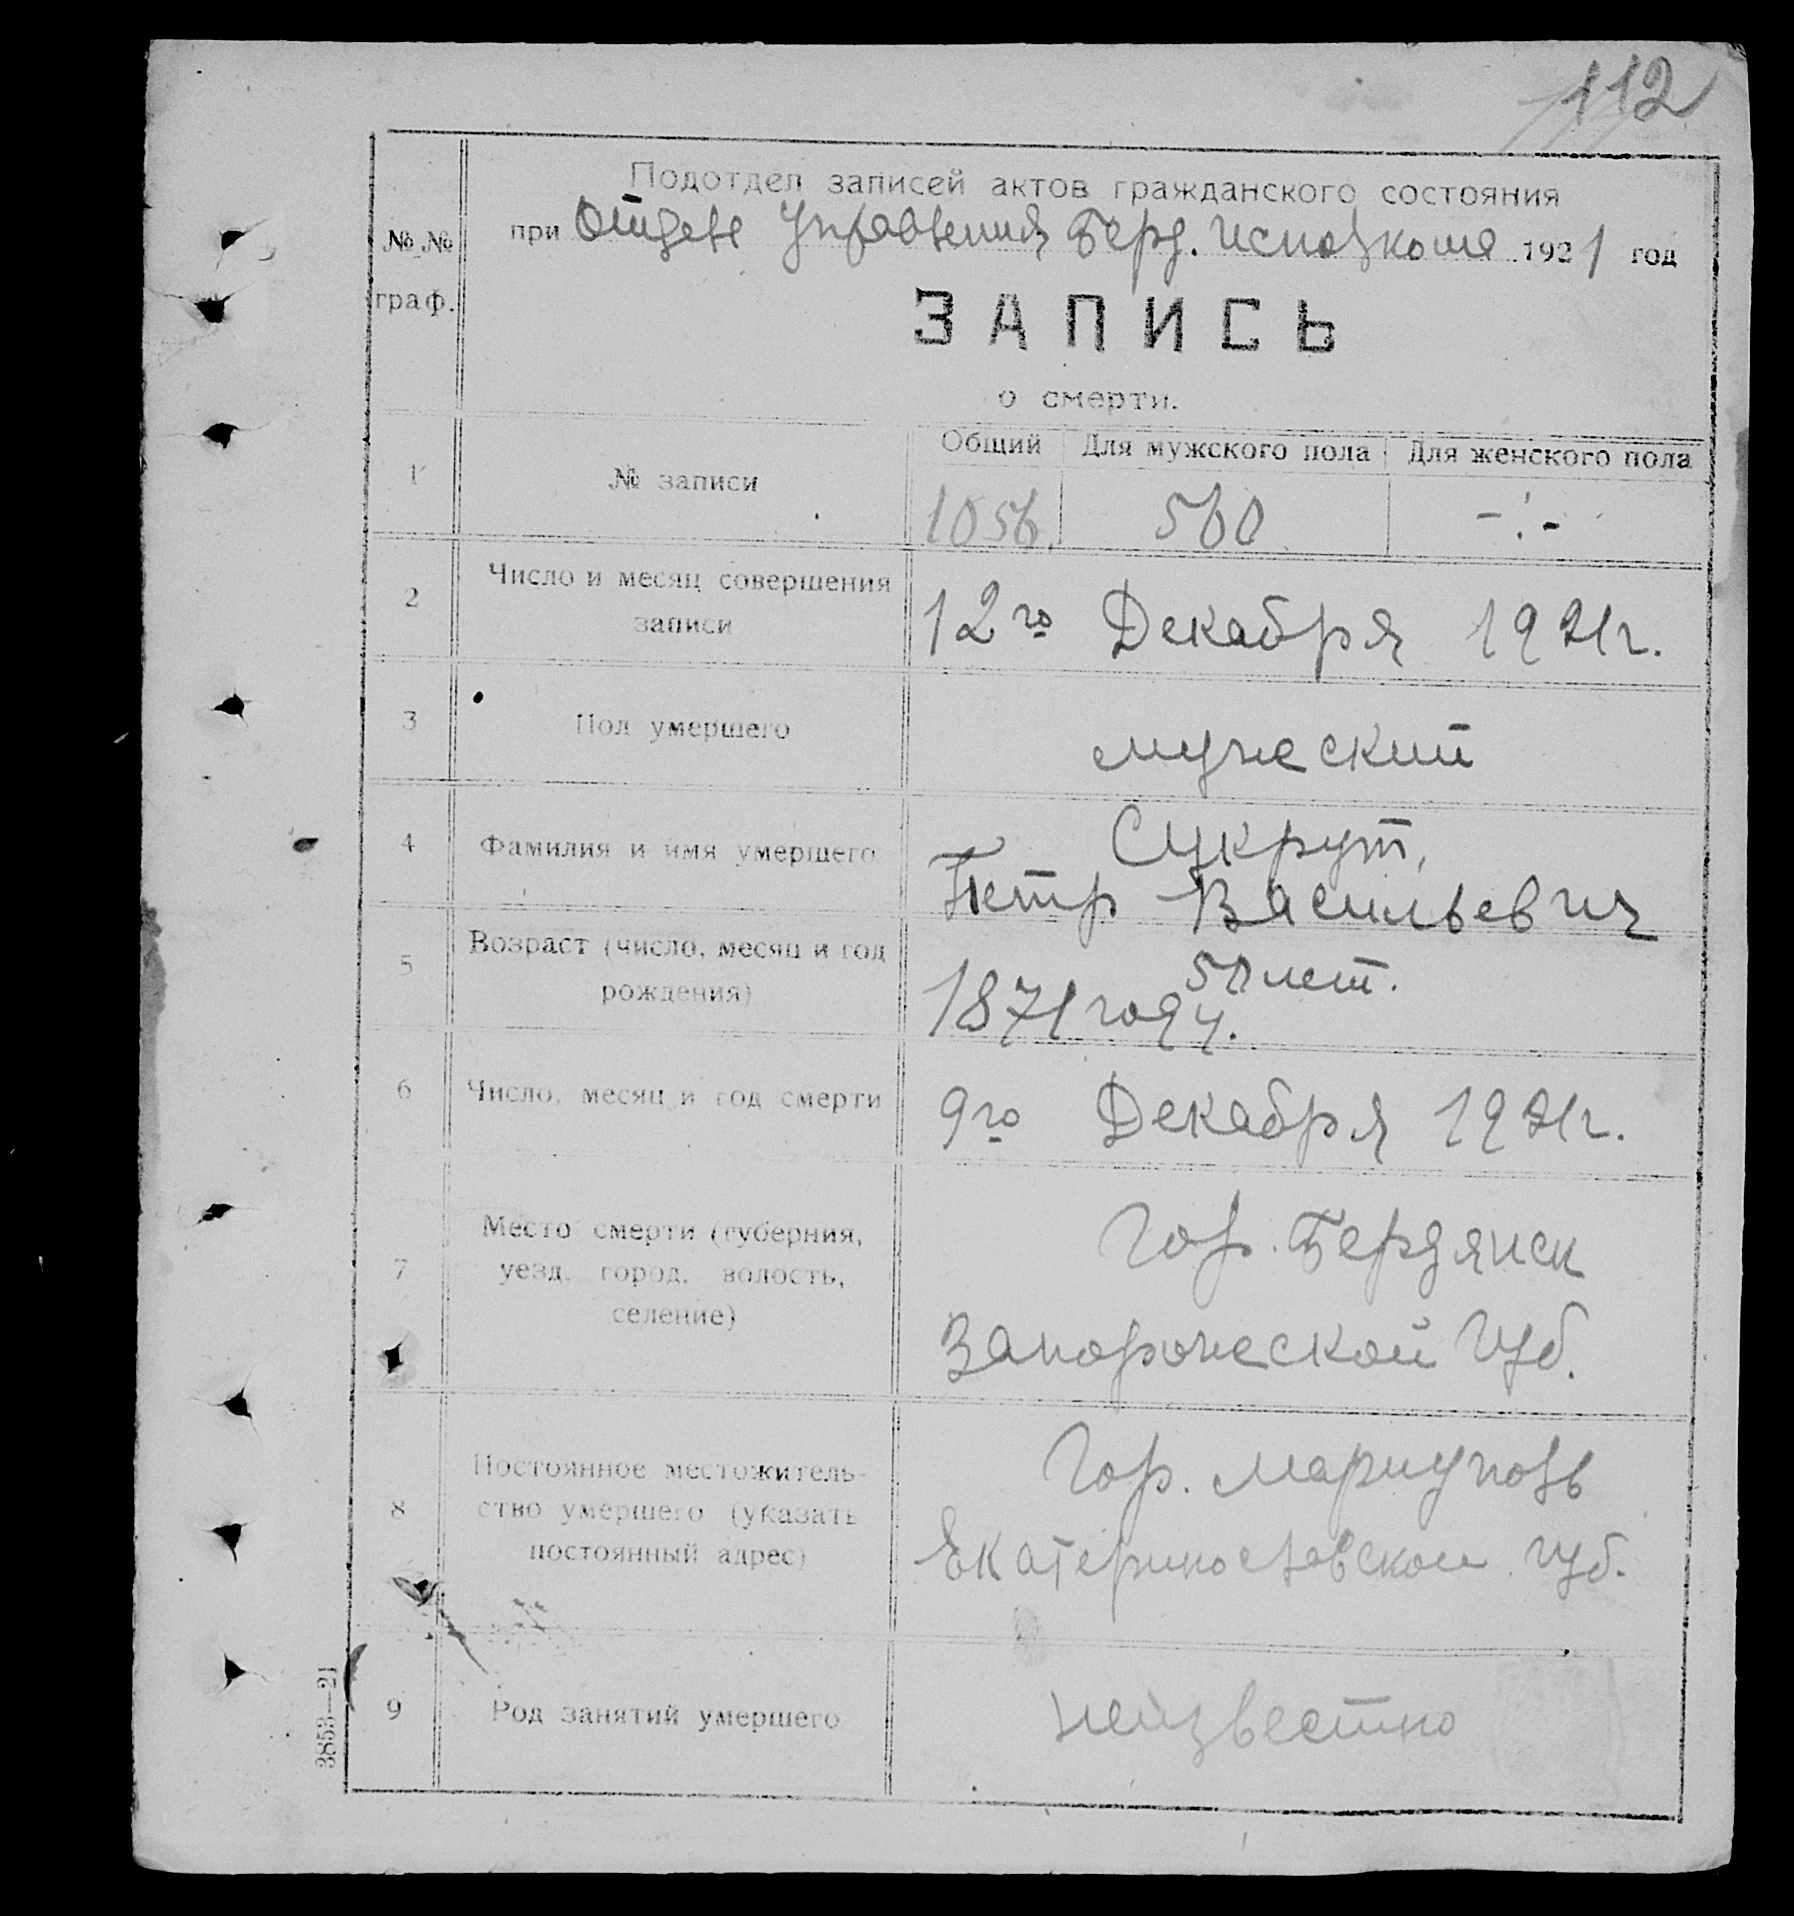 112
Подотдел записей актов гражданского состояния
при Отделе Управления Берд. Исполкома 1921 год
№№ граф.
ЗАПИСЬ
о смерти.
Общий Для мужского пола Для женского пола
1 № записи 1056. 560 -:-
2 Число и месяц совершения
записи
12го Декабря 1921г.
3 Пол умершего мужеский
4 Фамилия и имя умершего
Сукрут,
Петр Васильевич
5 Возраст (число, месяц и год
рождения)
50 лет.
1871 году.
6 Число, месяц и год смерти 9го Декабря 1921г.
7 Место смерти (губерния,
уезд, город, волость,
селение)
Гор. Бердянск
Запорожеской Губ.
8 Постоянное местожитель-
ство умершего (указать
постоянный адрес)
Гор. Мариуполь
Екатеринославской губ.
9 Род занятий умершего неизвестно
3853—21